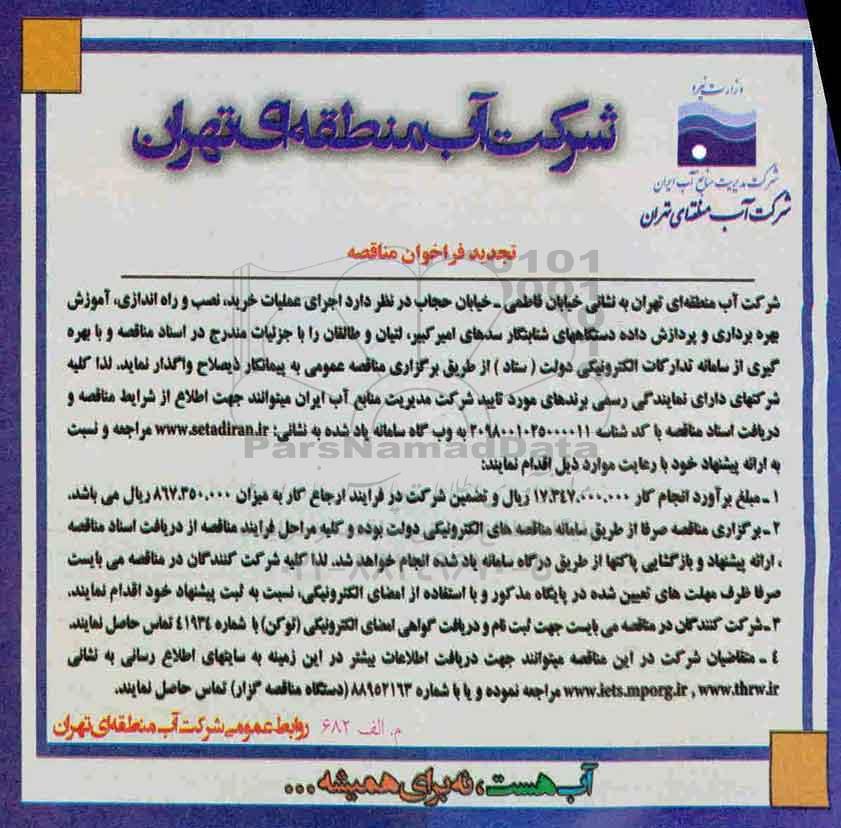 وزارت نیرو
شرکت مدیریت منابع آب ایران
شرکت آب منطقه‌ای تهران
شرکت آب منطقه‌ای تهران
تجدید فراخوان مناقصه
شرکت آب منطقه‌ای تهران به نشانی خیابان فاطمی ـ خیابان حجاب در نظر دارد اجرای عملیات خرید، نصب و راه اندازی، آموزش
بهره برداری و پردازش داده دستگاههای شتابنگار سدهای امیرکبیر، لتیان و طالقان را با جزئیات مندرج در اسناد مناقصه و با بهره
گیری از سامانه تدارکات الکترونیکی دولت ( ستاد ) از طریق برگزاری مناقصه عمومی به پیمانکار ذیصلاح واگذار نماید. لذا کلیه
شرکتهای دارای نمایندگی رسمی برندهای مورد تایید شرکت مدیریت منابع آب ایران میتوانند جهت اطلاع از شرایط مناقصه و
دریافت اسناد مناقصه با کد شناسه ۲۰۹۸۰۰۱۰۲۵۰۰۰۰۱۱ به وب گاه سامانه یاد شده به نشانی: www.setadiran.ir مراجعه و نسبت
به ارائه پیشنهاد خود با رعایت موارد ذیل اقدام نمایند:
۱ ـ مبلغ برآورد انجام کار ۱۷،۳۴۷،۰۰۰،۰۰۰ ریال و تضمین شرکت در فرایند ارجاع کار به میزان ۸۶۷،۳۵۰،۰۰۰ ریال می باشد.
۲ ـ برگزاری مناقصه صرفا از طریق سامانه مناقصه های الکترونیکی دولت بوده و کلیه مراحل فرایند مناقصه از دریافت اسناد مناقصه
، ارائه پیشنهاد و بازگشایی پاکتها از طریق درگاه سامانه یاد شده انجام خواهد شد. لذا کلیه شرکت کنندگان در مناقصه می بایست
صرفا ظرف مهلت های تعیین شده در پایگاه مذکور و با استفاده از امضای الکترونیکی، نسبت به ثبت پیشنهاد خود اقدام نمایند.
۳ ـ شرکت کنندگان در مناقصه می بایست جهت ثبت نام و دریافت گواهی امضای الکترونیکی (توکن) با شماره ۴۱۹۳۴ تماس حاصل نمایند.
۴ ـ متقاضیان شرکت در این مناقصه میتوانند جهت دریافت اطلاعات بیشتر در این زمینه به سایتهای اطلاع رسانی به نشانی
www.iets.mporg.ir , www.thrw.ir مراجعه نموده و یا با شماره ۸۸۹۵۲۱۶۳ (دستگاه مناقصه گزار) تماس حاصل نمایند.
م. الف ۶۸۲ روابط عمومی شرکت آب منطقه‌ای تهران
آب هست، نه برای همیشه ...
ParsNamadData